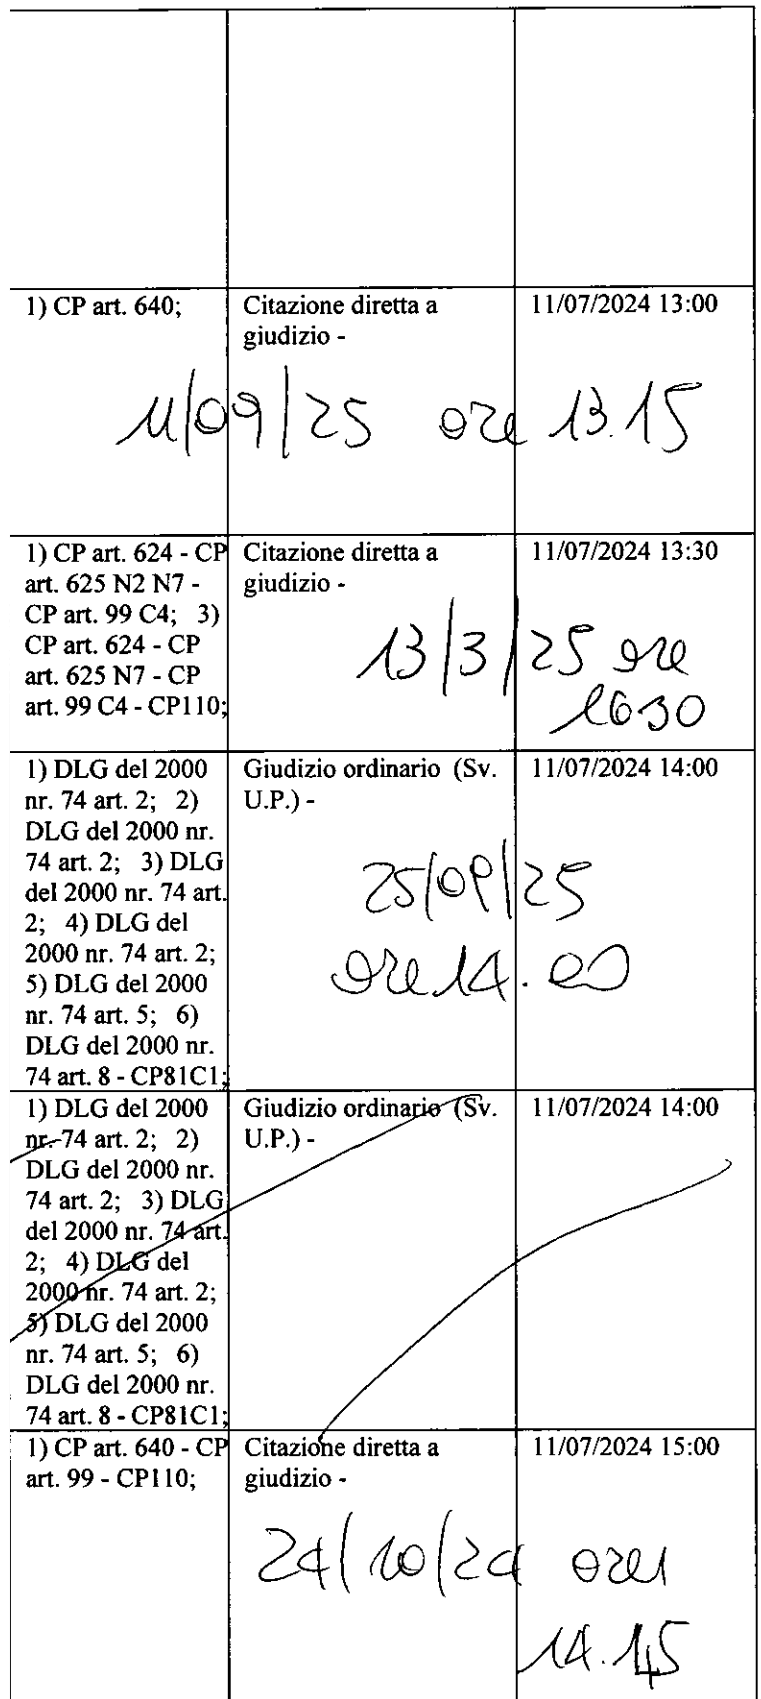 1) CP art. 640;
Citazione diretta a
giudizio -
11/07/2024 13:00
11/09/25 ore 13.15
1) CP art. 624 - CP
art. 625 N2 N7 -
CP art. 99 C4; 3)
CP art. 624 - CP
art. 625 N7 - CP
art. 99 C4 - CP110;
Citazione diretta a
giudizio -
11/07/2024 13:30
13/3/25 ore
1630
1) DLG del 2000
nr. 74 art. 2; 2)
DLG del 2000 nr.
74 art. 2; 3) DLG
del 2000 nr. 74 art.
2; 4) DLG del
2000 nr. 74 art. 2;
5) DLG del 2000
nr. 74 art. 5; 6)
DLG del 2000 nr.
74 art. 8 - CP81C1;
Giudizio ordinario (Sv.
U.P.) -
11/07/2024 14:00
25/09/25
ore 14.00
1) DLG del 2000
nr. 74 art. 2; 2)
DLG del 2000 nr.
74 art. 2; 3) DLG
del 2000 nr. 74 art.
2; 4) DLG del
2000 nr. 74 art. 2;
5) DLG del 2000
nr. 74 art. 5; 6)
DLG del 2000 nr.
74 art. 8 - CP81C1;
Giudizio ordinario (Sv.
U.P.) -
11/07/2024 14:00
1) CP art. 640 - CP
art. 99 - CP110;
Citazione diretta a
giudizio -
11/07/2024 15:00
24/10/24 ore
14.45